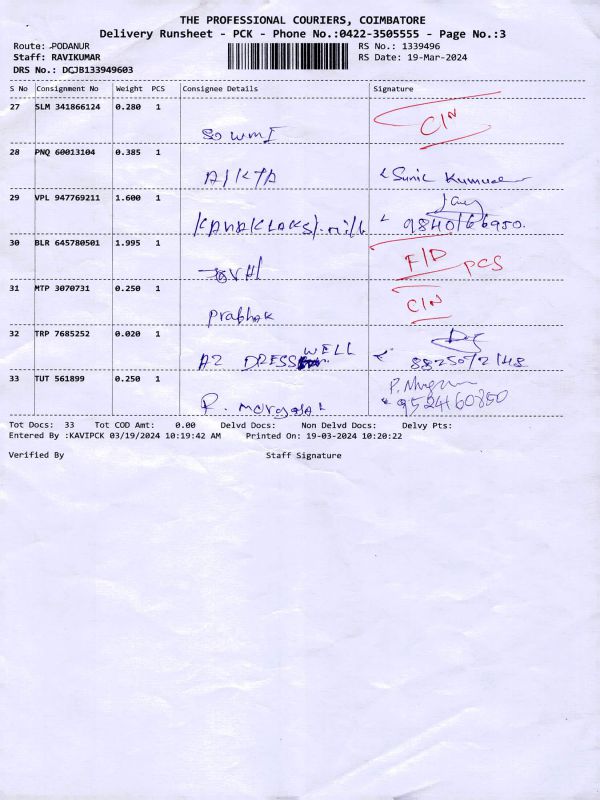 THE PROFESSIONAL COURIERS, COIMBATORE
Delivery Runsheet - PCK - Phone No.:0422-3505555 - Page No.:3
Route: PODANUR RS No.: 1339496
Staff: RAVIKUMAR RS Date: 19-Mar-2024
DRS No.: DCJB133949603
S No Consignment No Weight PCS Consignee Details Signature
27 SLM 341866124 0.280 1
SOWMI C/N
28 PNQ 60013104 0.385 1
AIKTA Sunil
29 VPL 947769211 1.600 1
9840166950
30 BLR 645780501 1.995 1
F/D PCS
31 MTP 3070731 0.250 1
Prabhak C/N
32 TRP 7685252 0.020 1
A2 DRESS WELL 8825072148
33 TUT 561899 0.250 1
9524160850
Tot Docs: 33 Tot COD Amt: 0.00 Delvd Docs: Non Delvd Docs: Delvy Pts:
Entered By :KAVIPCK 03/19/2024 10:19:42 AM Printed On: 19-03-2024 10:20:22
Verified By Staff Signature